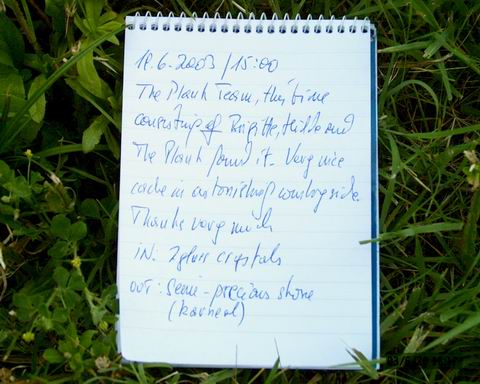 18.6.2003 / 15:00
The Plank Team, this time
consisting of Brigitte, Hilde and
The Plank found it. Very nice
cache in astonishing countryside.
Thanks very much
in: 2 glass crystals
out: semi-precious stone